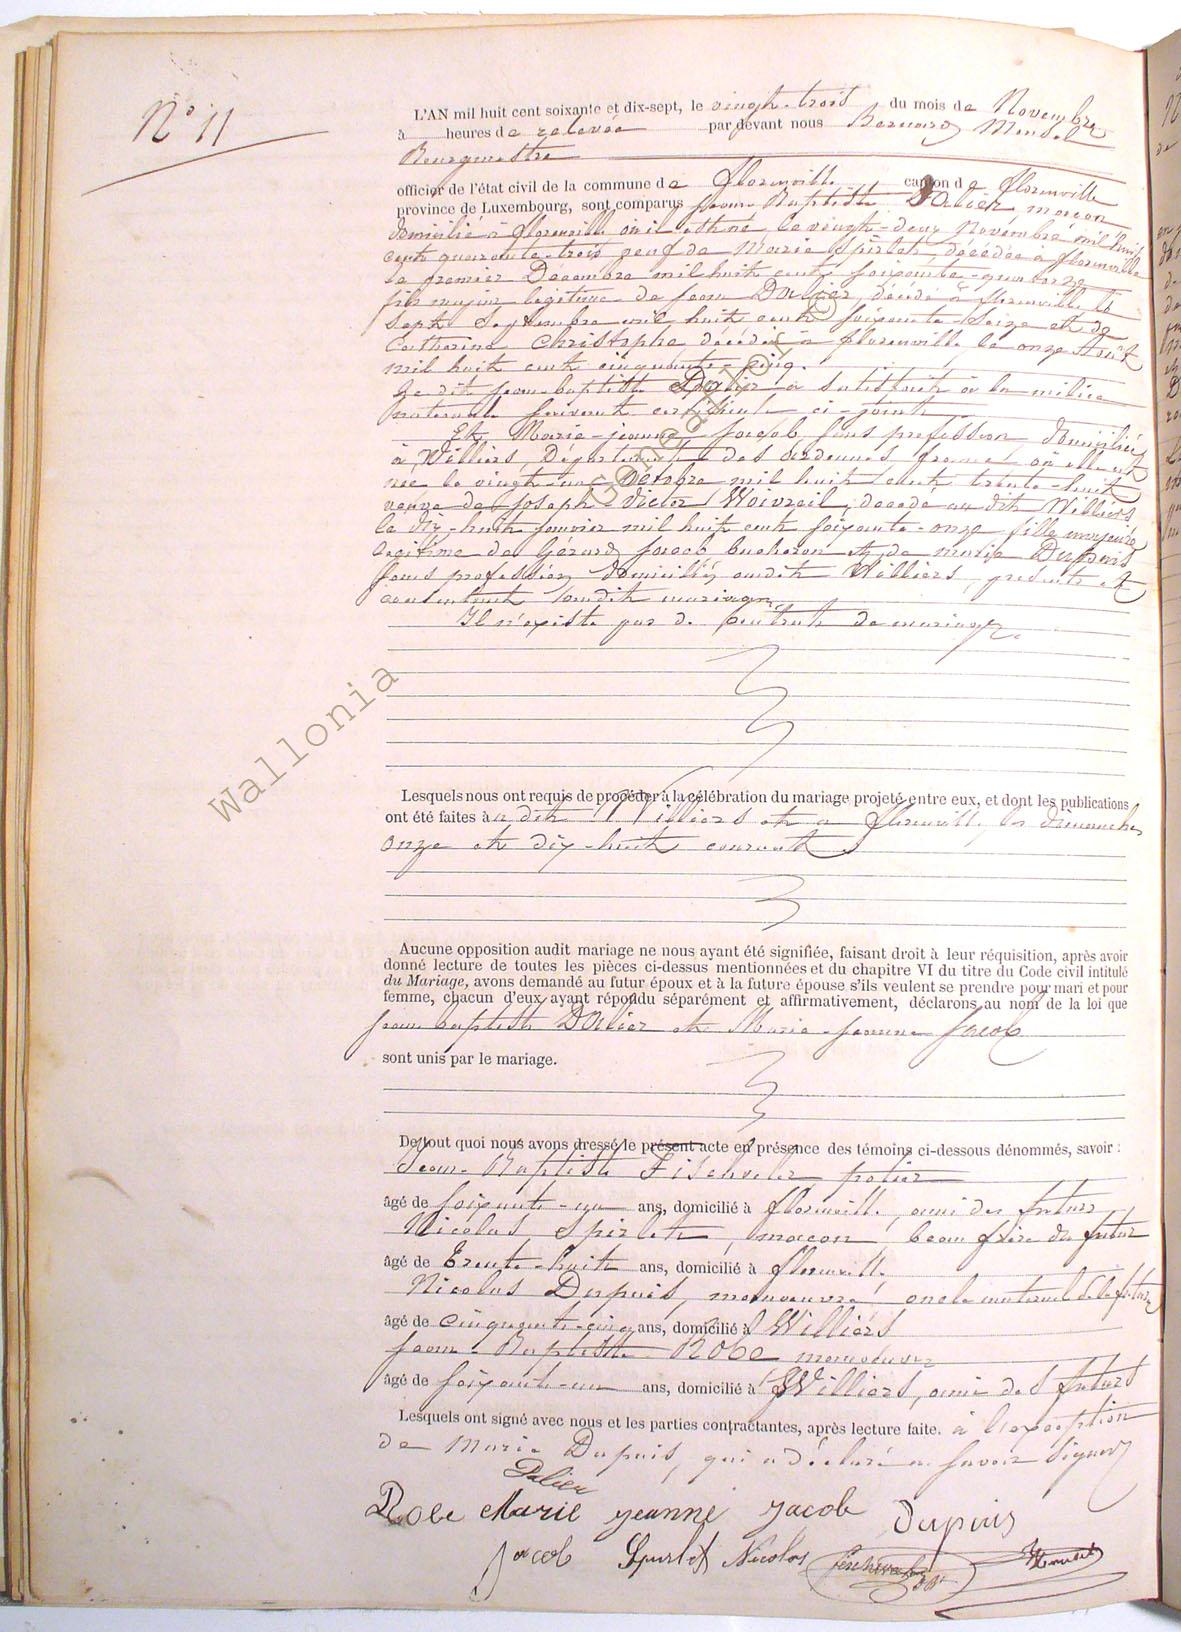 N° 11
L'AN mil huit cent soixante et dix-sept, le vingt-trois du mois de Novembre
à heures de relevée par devant nous Bernard
Bourgmestre
officier de l'état civil de la commune de florenville canton de florenville
province de Luxembourg, sont comparus Jean-Baptiste Dalier, maçon
domicilié à florenville où il est né le vingt-deux Novembre mil huit
cent quarante-trois veuf de Marie Spirlet décédée à florenville
le premier Decembre mil huit cent soixante-quatorze
fils majeur légitime de Jean Dalier, décédé à florenville le
Sept Septembre mil huit cent soixante-seize et de
Catherine Christophe décédée à florenville le onze Août
mil huit cent cinquante-cinq.
Le dit Jean-baptiste Dalier a satisfait à la milice
nationale suivant certificat ci-joint
Et Marie-jeanne Jacob sans profession domiciliée
à Williers, Département des ardennes france où elle est
née le vingt-un mil huit cent trente-huit
veuve de Joseph Victor Woivreil, décédé au dit Williers
le dix-huit janvier mil huit cent soixante-onze fille majeure
légitime de Gérard Jacob bucheron et de marie Dupuis
sans profession domiciliés audit Williers, présents et
consentant audit mariage
Il n'existe pas de contrat de mariage.
Wallonia
Lesquels nous ont requis de procéder à la célébration du mariage projeté entre eux, et dont les publications
ont été faites à dit Williers et à florenville les dimanches
onze et dix-huit courant.
Aucune opposition audit mariage ne nous ayant été signifiée, faisant droit à leur réquisition, après avoir
donné lecture de toutes les pièces ci-dessus mentionnées et du chapitre VI du titre du Code civil intitulé
du Mariage, avons demandé au futur époux et à la future épouse s'ils veulent se prendre pour mari et pour
femme, chacun d'eux ayant répondu séparément et affirmativement, déclarons au nom de la loi que
jean baptiste Dalier et Marie-jeanne Jacob
sont unis par le mariage.
De tout quoi nous avons dressé le présent acte en présence des témoins ci-dessous dénommés, savoir :
Jean-Baptiste potier
âgé de soixante-un ans, domicilié à florenville, ami des futurs
Nicolas Spirlet, maçon, beau frère du futur
âgé de Trente-huit ans, domicilié à florenville,
Nicolas Dupuis, manœuvre, oncle maternel de la future
âgé de cinquante-cinq ans, domicilié à Williers
jean-Baptiste Robe manœuvre
âgé de soixante-un ans, domicilié à Williers, ami des futurs
Lesquels ont signé avec nous et les parties contractantes, après lecture faite. à l'exception
de Marie Dupuis, qui a déclaré ne savoir signer
Dalier
Robe Marie jeanne jacob Dupuis
jacob Spirlet Nicolas